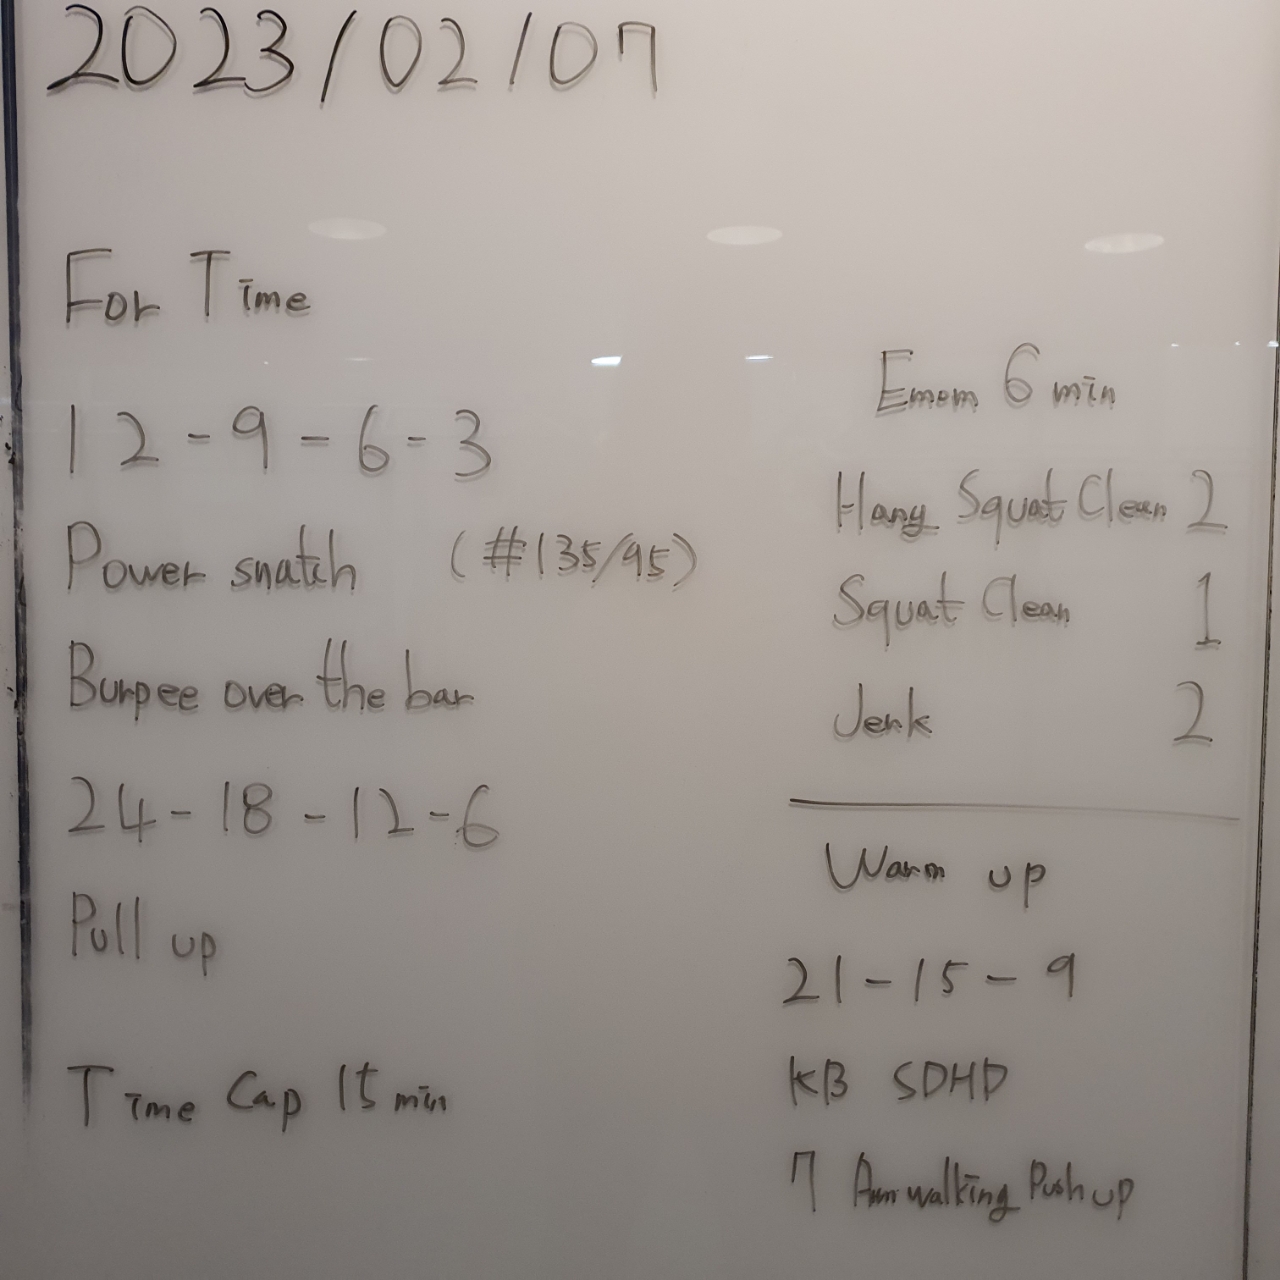 2023/02/07
For Time
12-9-6-3
Power snatch (#135/95)
Burpee over the bar
24-18-12-6
Pull up
Time Cap 15 min
Emom 6 min
Hang Squat Clean 2
Squat Clean 1
Jerk 2
Warm up
21-15-9
KB SDHD
7 Arm walking Push up